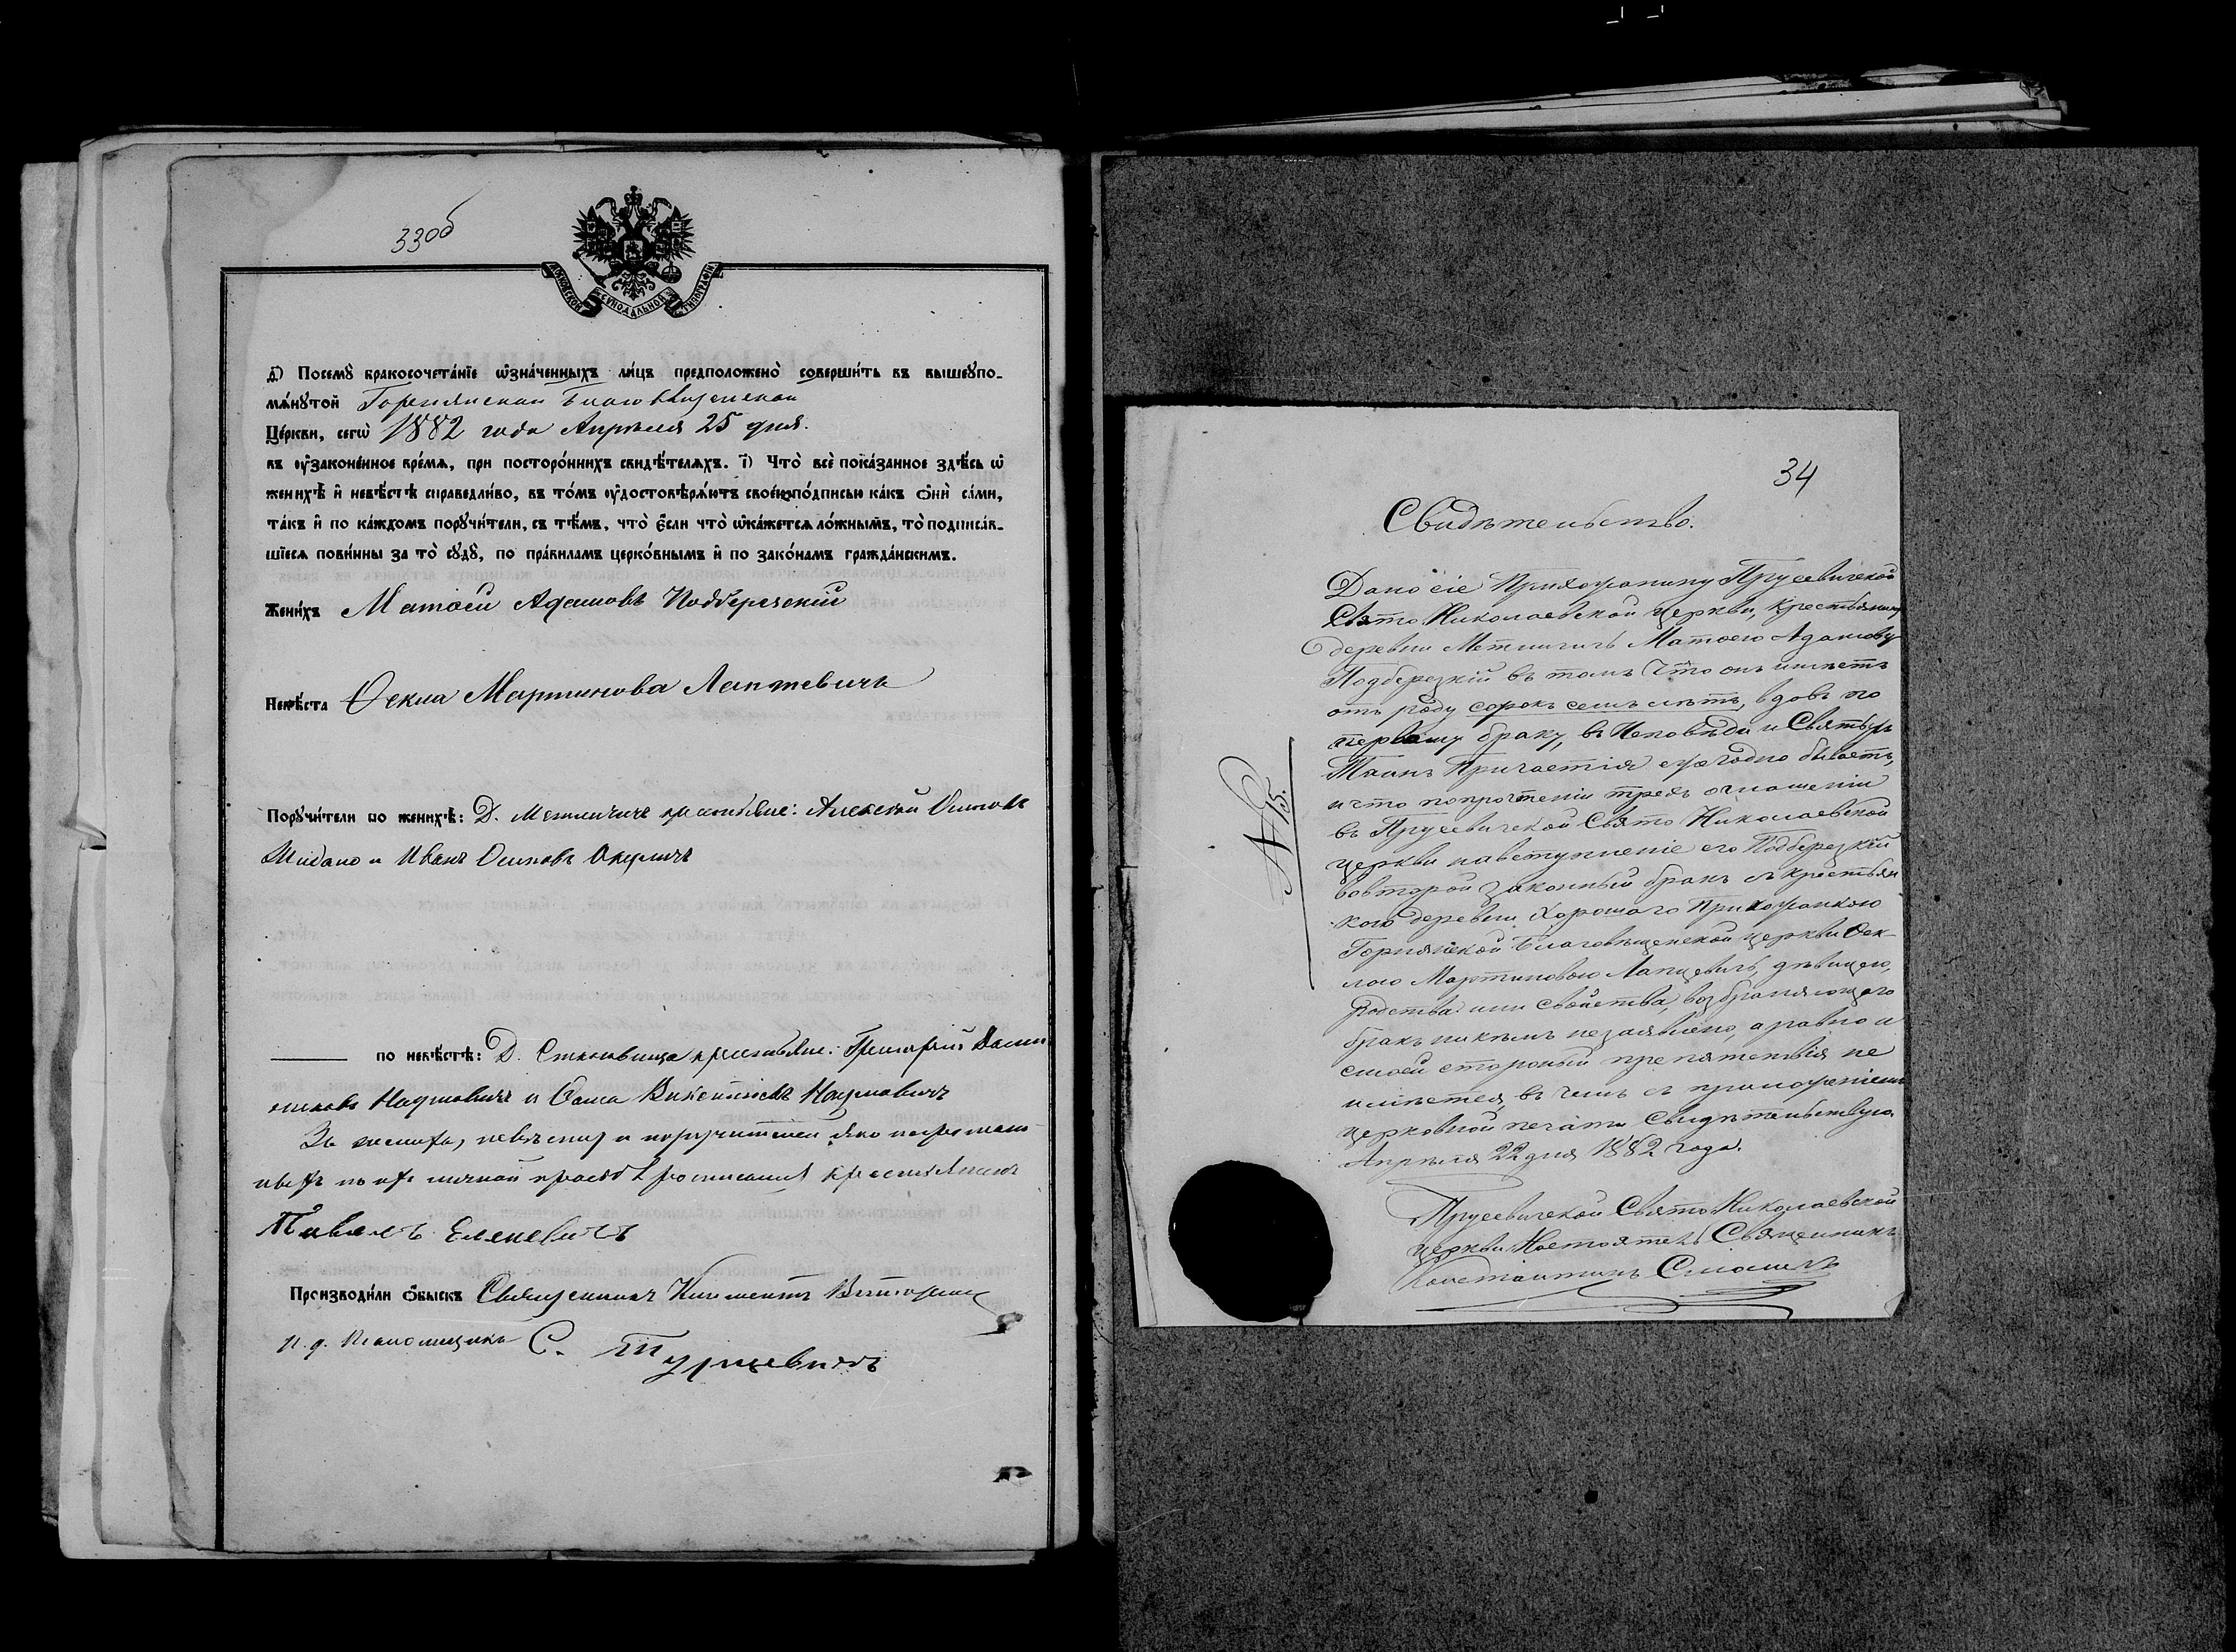 330б
МОСКОВСКОЙ СУНОДАЛЬНОЙ ТИПОГРАФІИ
д҃) Посемꙋ̀ бракосочета́нїе ѡ҆зна́ченныхъ ли́цъ предположено̀ соверши́ть въ вышеꙋпо-
мѧ́нꙋтой Горнянской Благовѣщенской
Це́ркви, сегѡ̀ 1882 года Апрѣля 25 дня.
въ ᲂу҆зако́не́нное вре́мѧ, при посторо́ннихъ свидѣ́телѧхъ. і҃) Что̀ всѐ пока́занное здѣ́сь ѡ҆
женихѣ̀ и҆ невѣ́стѣ справедли́во, въ то́мъ ᲂу҆достовѣрѧ́ютъ свое́ю по́дписью ка́къ ѻ҆нѝ са́ми,
та́къ и҆ по ка́ждомъ порꙋчи́тели, съ тѣ́мъ, что̀ є҆́сли что̀ ѡ҆ка́жетсѧ ло́жнымъ, то̀ подписа́в-
шїесѧ пови́нны за то̀ сꙋдꙋ̀, по пра́виламъ церко́внымъ и҆ по зако́намъ гражда́нскимъ.
Жени́хъ Матѳей Адамовъ Подберезкій
Невѣ́ста Ѳекла Мартинова Лапцевичъ
Порꙋчи́тели по женихѣ̀: Д. Метличичъ крестьяне: Алексѣй Осиповъ
и Иванъ Осиповъ Окуличъ
по невѣ́стѣ: Д. Становища крестьяне: Григорій
Наумовичъ и Ѳома Викентіевъ Наумовичъ
За жениха, невѣсту и поручителей яко неграмот-
ныхъ по ихъ личной просьбѣ росписался крестьянинъ
Павелъ Еленевичъ
Производи́ли ѻ҆́быскъ Священникъ Климентъ
И. д. Псаломщика С. Турцевичъ
34
Свидѣтельство.
Дано сіе Прихожанину Прусевичской
Свято Николаевской церкви, крестьянину
деревни Метличичъ Матѳею Адамову
Подберезкій въ томъ что онъ имѣетъ
отъ роду сорокъ семь лѣтъ, вдовъ по
первому браку, въ Исповѣди и Святыхъ
Таинъ Причастія ежегодно бываетъ,
и что по прочтеніи трехъ оглашеніи
въ Прусевичской Свято Николаевской
церкви на вступленіе его Подберезкій
во второй законный бракъ съ крестьян
кою деревни Хорошаго Прихожанкою
Горнянской Благовѣщенской церкви Ѳек-
лою Мартиновою Лапцевичъ, дѣвицею,
родства или свойства, возбраняющаго
бракъ никѣмъ не заявлено, а равно и
съ моей стороны препятствія не
имѣется, въ чемъ съ приложеніемъ
церковной печати свидѣтельствую
Апрѣля 22 дня 1882 года.
№ 15.
Прусевичской Свято Николаевской
церкви Настоятель Священникъ
Константинъ Смоличъ